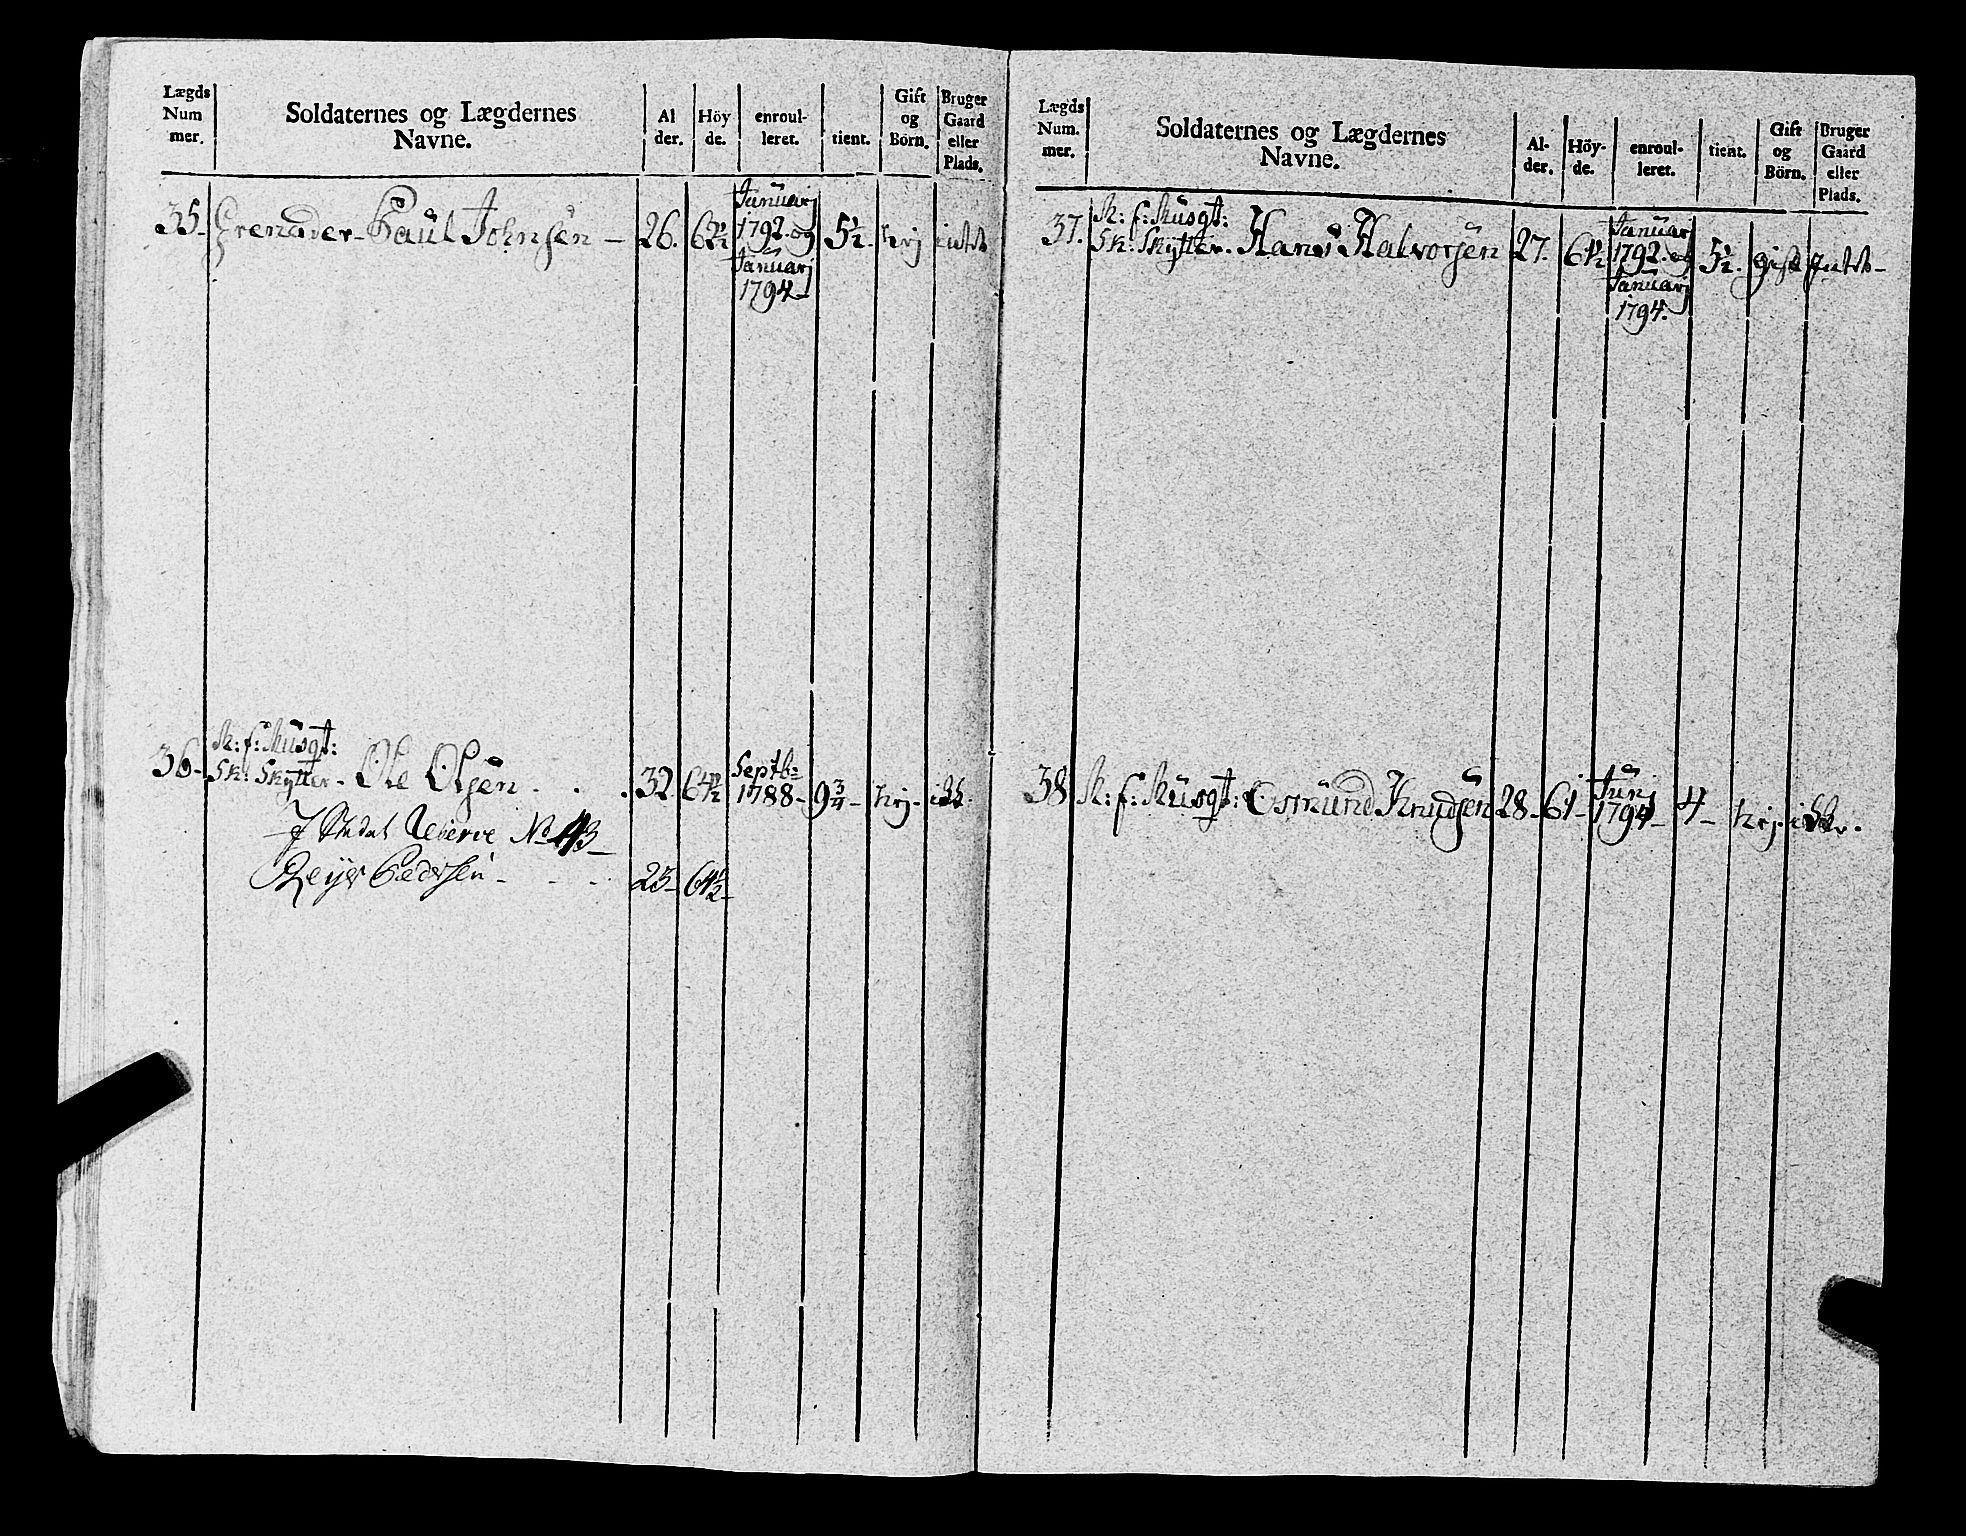 Lægds
Num
mer.
Soldaternes og Lægdernes
Navne.
Al
der.
Höy
de.
enroul-
leret.
tient.
Gift
og
Börn.
Bruger
Gaard
eller
Plads.
35. Grenader - Paul Johnsen - 26. 62½ Januarj 1792. og Januarj 1794- 5½. hej intet
36- R: f: Musqt:
Sk: Skytter - Ole Olsen . . . 32. 64½ Septb= 1788- 9¾- hej- ikk.
J Stedet Reserve No 43-
Reyer Pedersen - . . . 25- 64½-
Lægds
Num.
mer.
Soldaternes og Lægdernes
Navne.
Al-
der.
Höy-
de.
enroul-
leret.
tient.
Gift
og
Börn.
Bruger
Gaard
eller
Plads.
37. R: f: Musqt:
Sk: Skytter. Hans Halvorsen 27. 61½ Januarj 1792. og Januarj 1794. 5½. gift intet-
38 R: f: Musqt: Osmund Knudsen 28- 61- Junj 1794- 4- hej. ikke.